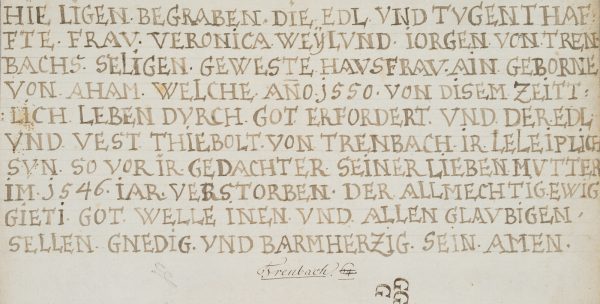 HIE LIGEN · BEGRABEN · DIE EDL VND TVGENTHAF-
FTE · FRAV · VERONICA WEŸLVND · IORGEN · VON TREN-
BACHS · SELIGEN · GEWESTE HAVSFRAV · AIN GEBORNE
VON · AHAM · WELCHE · AÑO 1550 · VON DISEM ZEITT-
LICH LEBEN DVRCH · GOT ERFORDERT · VND · DER EDL
VND · VEST THIEBOLT · VON TRENBACH · IR LELEIPLICH
SVN · SO VOR IR · GEDACHTER SEINER LIEBEN MVTTER
IM · 1546 · IAR · VERSTORBEN · DER ALLMECHTIG EWIG
GIETI · GOT WELLE INEN VND ALLEN GLAVBIGEN ·
SELLEN GNEDIG · VND BARMHERZIG · SEIN · AMEN ·
Trenbach